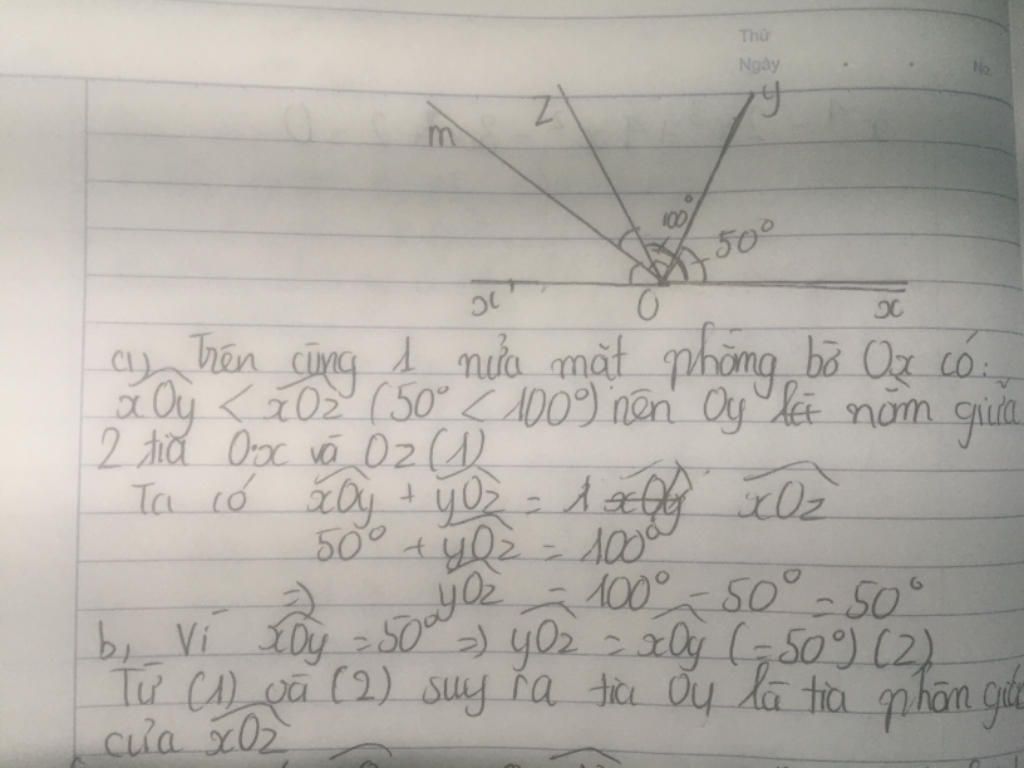 Thứ
Ngày
No.
m
z
y
100°
50°
x'
O
x
a) Trên cùng 1 nửa mặt phẳng bờ Ox có:
xOy < xOz (50° < 100°) nên Oy nằm giữa
2 tia Ox và Oz (1)
Ta có xOy + yOz = xOz
50° + yOz = 100°
=> yOz = 100° - 50° = 50°
b, Vì xOy = 50° => yOz = xOy (=50°) (2)
Từ (1) và (2) suy ra tia Oy là tia phân giác
của xOz